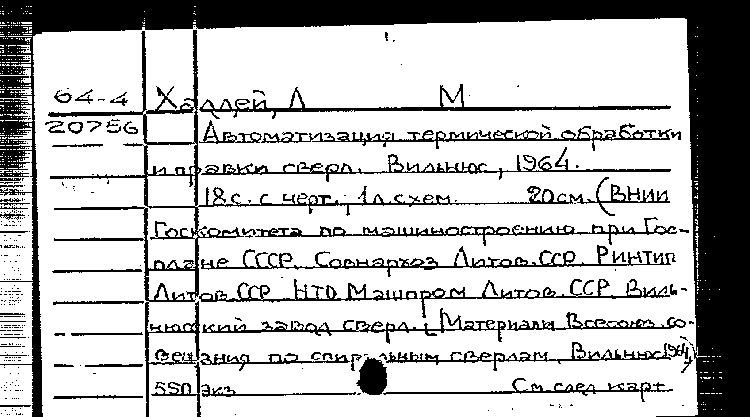 1.
64-4 Халлей, Л М
20756 Автоматизация термической обработки
и правки сверл. Вильнюс, 1964.
18 с. с черт., 1 л. схем. 20 см. (ВНИИ
Госкомитета по машиностроению при Гос-
плане СССР. Совнархоз Литов. ССР. РИНТИП
Литов. ССР. НТО Машпром Литов. ССР. Виль-
нюсский завод сверл. Материалы Всесоюз. со-
вещания по спиральным сверлам. Вильнюс 1964)
550 экз См. след карт.